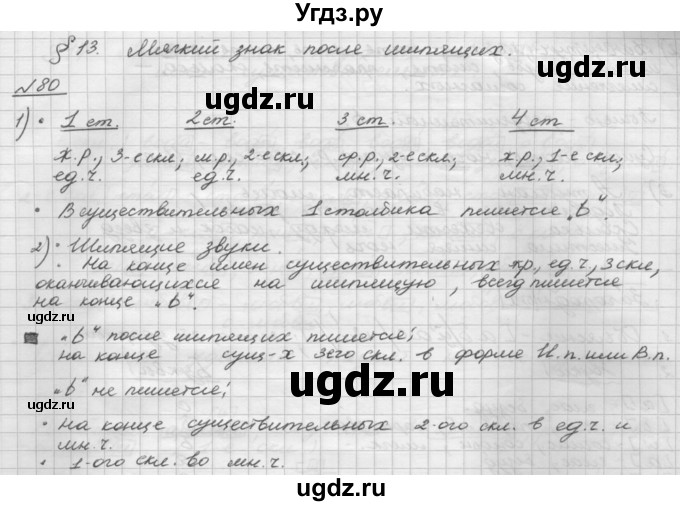 Угдз.ру
§ 13. Мягкий знак после шипящих.
№80
ugdz.ru ugdz.ru
1) • 1 ст. 2 ст. 3 ст. 4 ст
ж.р., 3-е скл; м.р., 2-е скл; ср.р., 2-е скл; ж.р., 1-е скл;
ед.ч. ед.ч. мн.ч. мн.ч.
ugdz.ru
• В существительных 1 столбика пишется „ь".
2) • Шипящие звуки.
• На конце имен существительных жр., ед.ч, 3 скл,
оканчивающихся на шипящую, всегд пишется
на конце „ь".
ugdz.ru ugdz.ru
„ь" после шипящих пишется;
на конце сущ-х 3его скл. в форме И.п. или В.п.
• „ь" не пишется;
ugdz.ru
• на конце существительных 2-ого скл. в ед.ч. и
мн.ч.
• 1-ого скл. во мн.ч.
ugdz.ru
ugdz.ru